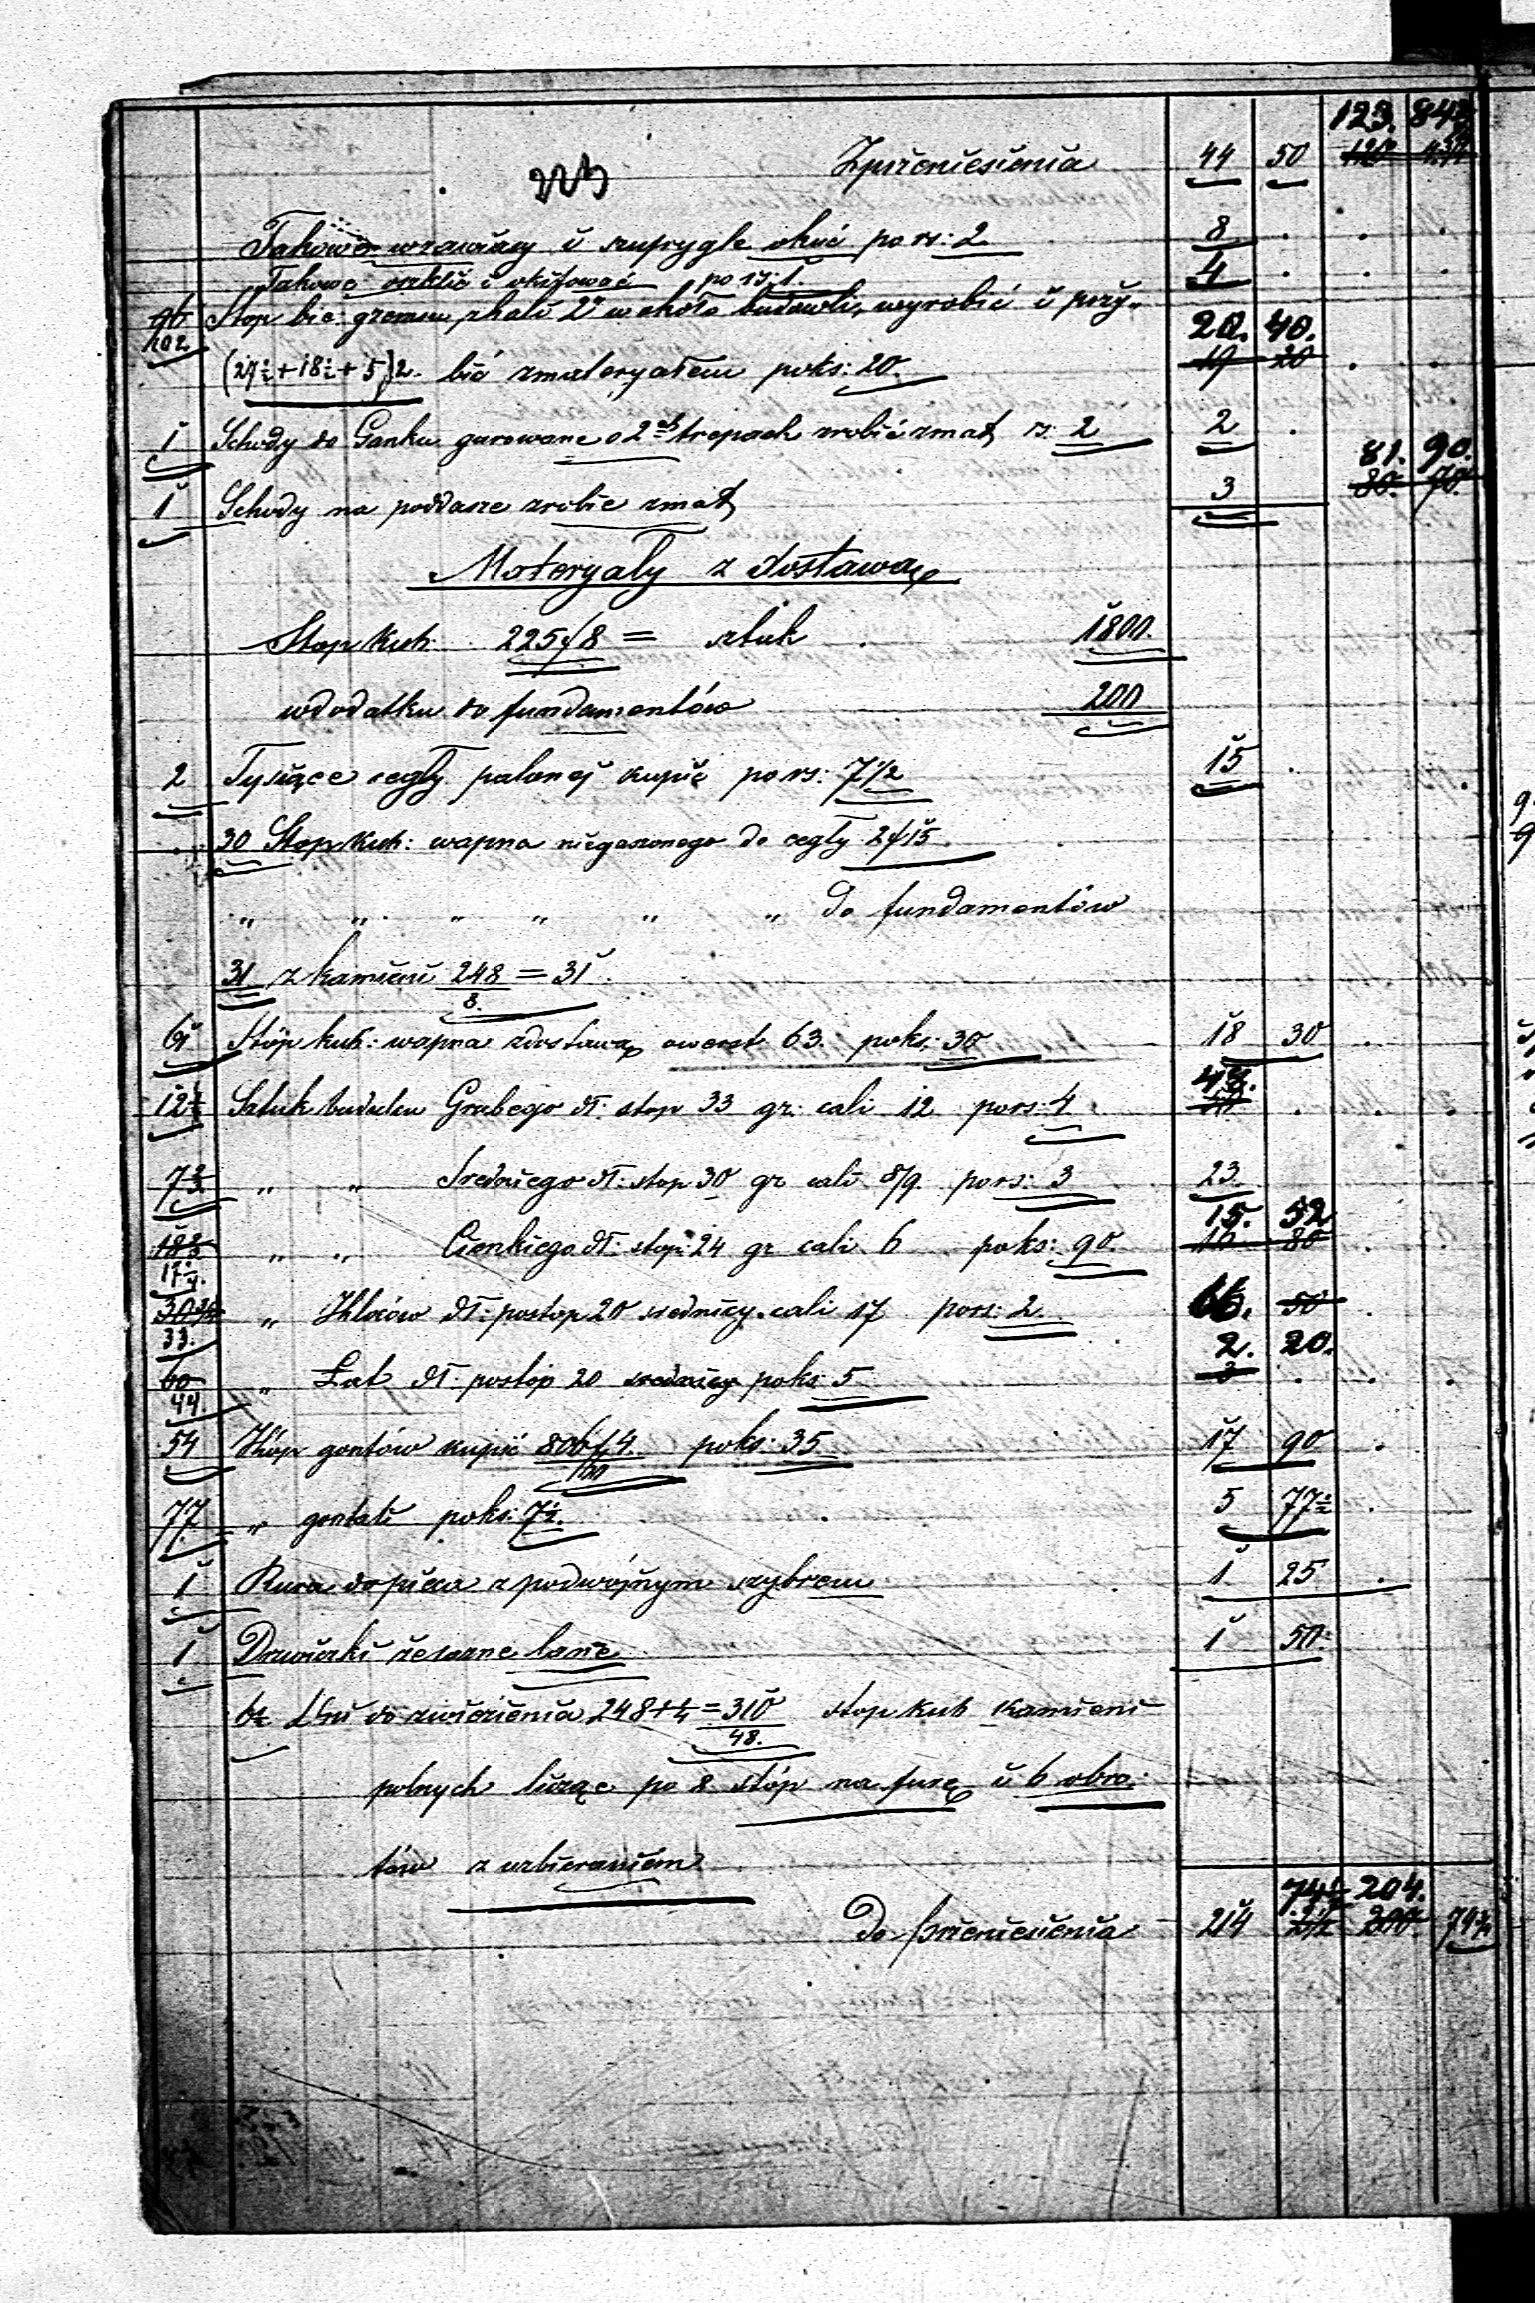 123. 84¾
Zprzeniesienia 44 50 120 43¾
223
Takowe wzawiasy i szufrygle okuć po rs: 2. 8
Takowe oszklić i okitować po rs: 1. 4
96 Stop bie: gzemsu, zbali 2" wokoło budowli, wyrobić i przy-
102. 20. 40.
(27½+18½+5)2. bić zmateryałem poks: 20. 19 20
1 Schody do Ganku garowane o 2ch trepach zrobić zmat, rs: 2 2
81. 90.
1 Schody na poddasze zrobić zmat, 3 80. 70.
Materyały z dostawą
Stop kub: 225/8 = sztuk 1800.
wdodatku do fundamentów 200
2 Tysiące cegły palonej kupić po rs: 7½ 15
30 Stop kub: wapna niegaszonego do cegły 2/15
" " " " " " do fundamentów
31 z kamieni 248/8. = 31
61 Stóp kub: wapna zdostawą owerst 63. poks: 30 18 30
48.
12½ Sztuk budulcu Grubego dł: stop 33 gr: cali 12 pors: 4
7⅔ " " Średniego dł: stop 30 gr cali 8/9. pors: 3 23.
15. 52
18⅔ " " Cienkiego dł: stop 24 gr cali 6 poks: 90. 16 80
17¼.
30¾ " Kloców dł: postop 20 średnicy cali 17 pors: 2. 66. 50
33. 2. 20.
60 " Łat dł: postóp 20 średnicy poks: 5 3
44.
54 Kóp gontów kupić 806/4. poks: 35 17 90
100
77. " gontali poks: 7½. 5 77½
1 Rura do pieca z podwójnym szybrem 1 25
1 Drzwiczki żelazne lane 1 50
6½ Dni do zwiezienia 248+¼=310 stop kub kamieni
48.
polnych licząc po 8 stóp na furę i 6 obro-
tów z uzbieraniem
74½ 204.
Do przeniesienia 214 300. 74½